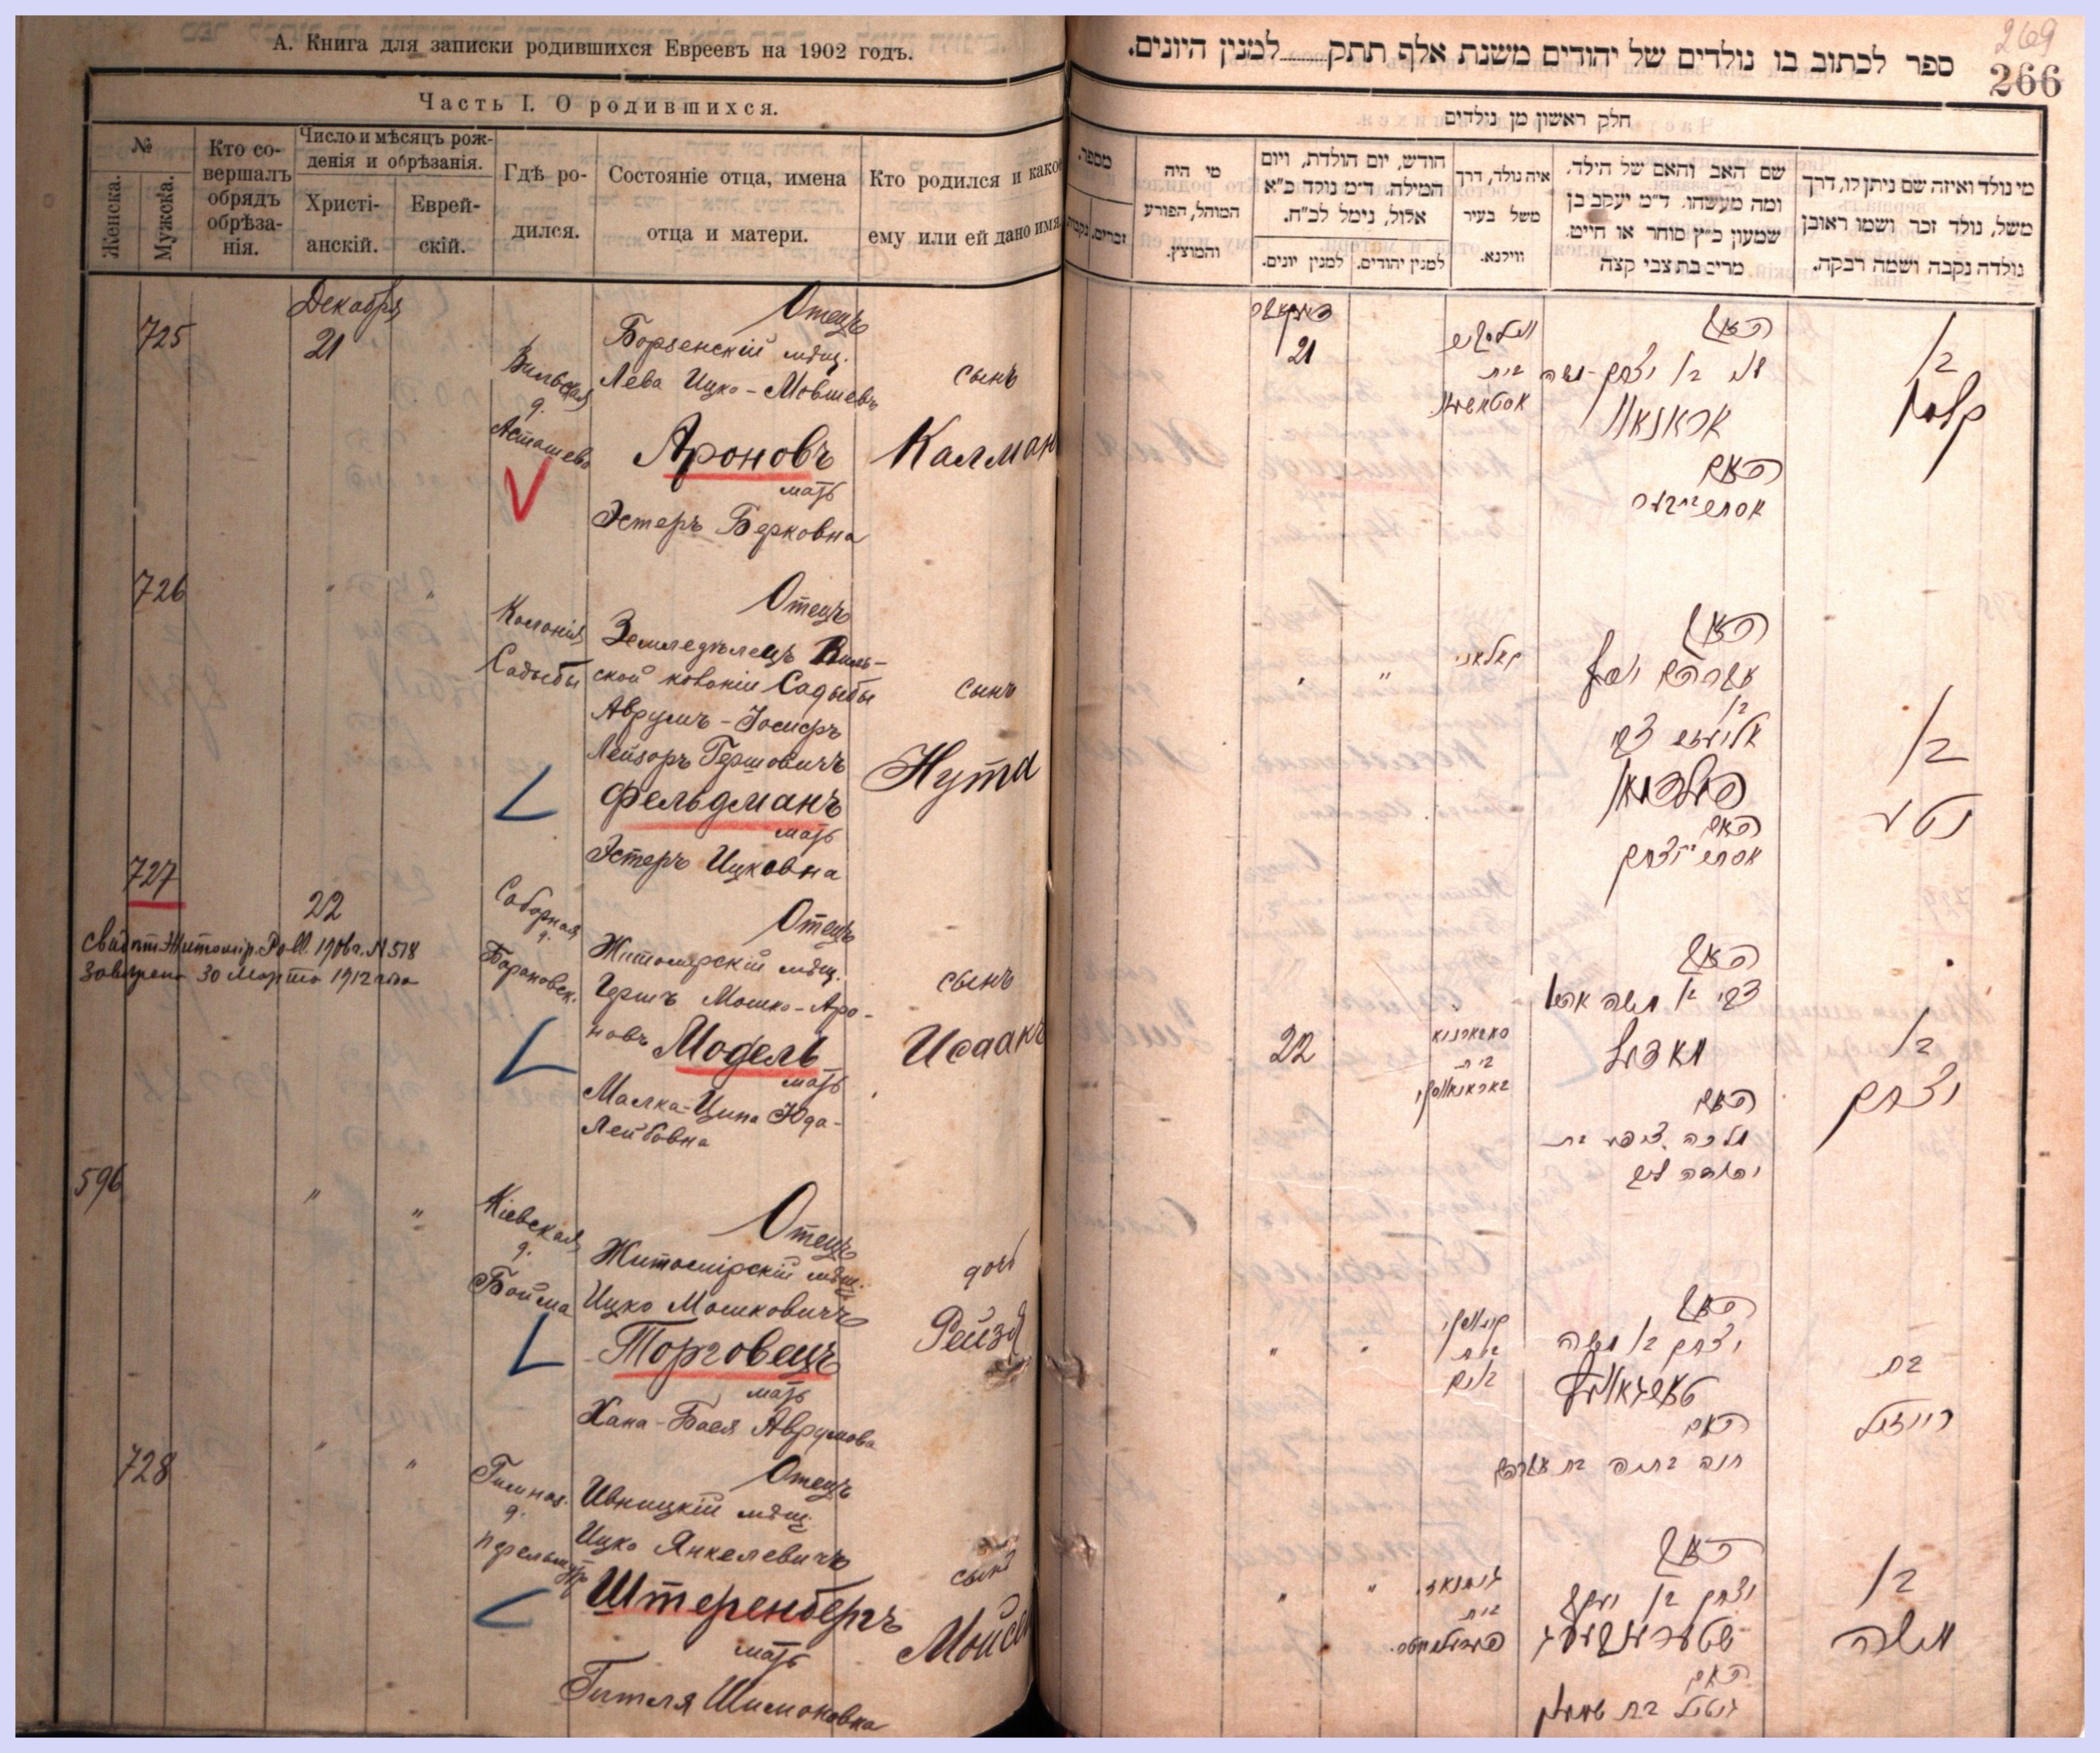 А. Книга для записки родившихся Евреевъ на 1902 годъ.
Часть I. О родившихся.
№
Женска.
Мужска.
Кто со-
вершалъ
обрядъ
обрѣза-
нія.
Число и мѣсяцъ рож-
денія и обрѣзанія.
Христі-
анскій.
Еврей-
скій.
Гдѣ ро-
дился.
Состояніе отца, имена
отца и матери.
Кто родился и какое
ему или ей дано имя.
725
Декабря
21
Вильская
д.
Асташева
Отецъ
Борзенскій мѣщ.
Лева Ицко-Мовшевъ
Ароновъ
мать
Эстеръ Берковна
сынъ
Калман
726
" "
Колонія
Садыбы
Отецъ
Земледѣлецъ Виль-
ской колоніи Садыбы
Аврумъ-Іосифъ
Лейзоръ Гершовичъ
Фельдманъ
мать
Эстеръ Ицковна
сынъ
Нута
727
22
30 Марта 1912 года
Соборная
д.
Бароновск.
Отецъ
Житомірскій мѣщ.
Гершъ Мошко-Аро-
новъ Модель
мать
Малка-Ципа Юда-
Лейбовна
сынъ
Исаакъ
596
" "
Кіевская
д.
Бойма
Отецъ
Житомірскій мѣщ.
Ицко Мошковичъ
Торговецъ
мать
Хана-Бася Аврумова
дочь
Рейзя
728
" "
Гимназ.
д.
Перельмутр
Отецъ
Ивницкій мѣщ.
Ицко Янкелевичъ
Штеренбергъ
мать
Гитля Шимоновна
сынъ
Мойсей
269
266
ספר לכתוב בו נולדים של יהודים משנת אלף תתק למנין היונים.
חלק ראשון מן נולדים
מספר.
זכרים.
נקבות
מי היה
המוהל, הפורע
והמוצץ.
חודש, יום הולדת, ויום
המילה. ד"מ נולד כ"א
אלול, נימל לכ"ח.
למנין יהודים.
למנין יונים.
איה נולד, דרך
משל בעיר
ווילנא.
שם האב והאם של הילד,
ומה מעשהו. ד"מ יעקב בן
שמעון כ"ץ סוחר או חייט.
מרים בת צבי קצה
מי נולד ואיזה שם ניתן לו, דרך
משל, נולד זכר ושמו ראובן
נולדה נקבה ושמה רבקה.
21
האב
אראנאוו
האם
בן
קלמן
האב
בן
פעלדמאן
האם
בן
נטע
22
האב
צבי בן משה אהרן
מאדעל
האם
מלכה ציפע בת
יהודה ליב
בן
יצחק
האב
יצחק בן משה
טארגאוועץ
האם
חנה באסיה בת אברהם
בת
רייזיל
האב
יצחק בן יעקב
שטערענבערג
האם
גיטיל בת שמעון
בן
משה